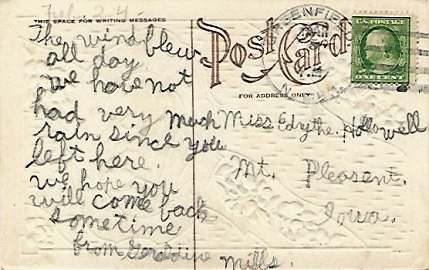 Feb. 24-
THIS SPACE FOR WRITING MESSAGES
The wind blew
all day
we have not
had very much
rain since you
left here.
we hope you
will come back
sometime
from Geraldine Mills.
Post Card
FOR ADDRESS ONLY
ENFIE
U.S. POSTAGE
ONE CENT
Miss Edythe Hollowell
Mt. Pleasant.
Iowa.